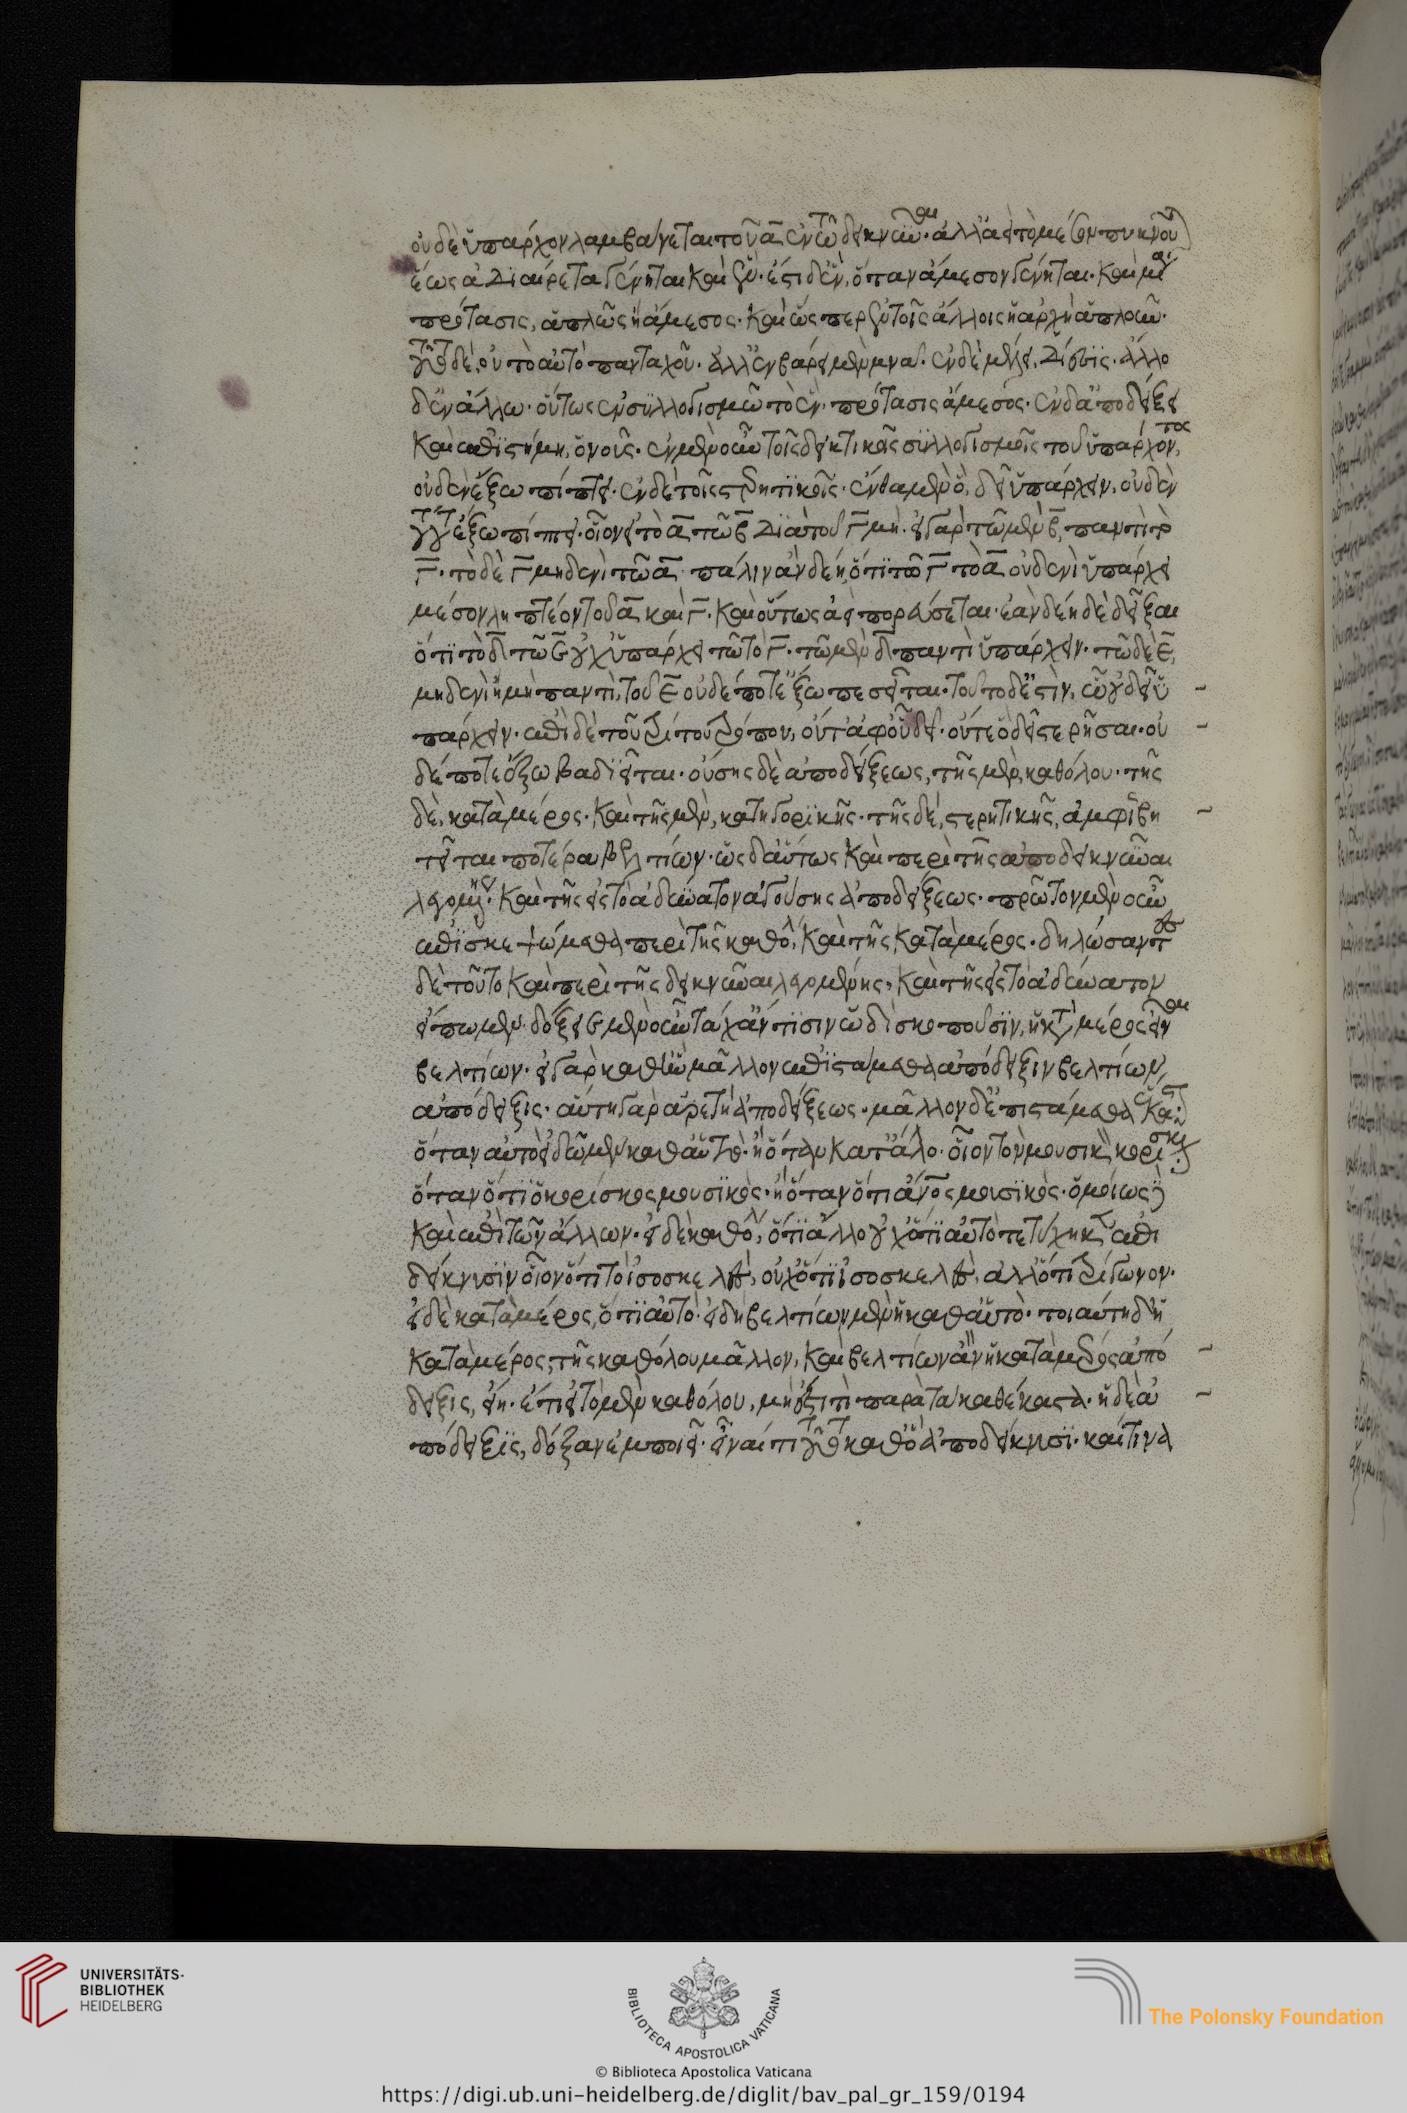 οὐδὲ ὑπάρχον λαμβάνεται τοῦ α ἐν τῶ δεικνύναι· ἀλλ' ἀεὶ τὸ μέσον πυκνοῦται
ἕως ἀδιαίρετα γένηται καὶ ἕν· ἔστι δ' ἕν, ὅταν ἄμεσον γένηται· καὶ μία
πρότασις, ἁπλῶς ἡ ἄμεσος· καὶ ὥσπερ ἐν τοῖς ἄλλοις ἡ ἀρχὴ ἁπλοῦν·
τοῦτο δὲ, οὐ τὸ αὐτὸ πανταχοῦ· ἀλλ' ἐν βάρει μὲν μνᾶ· ἐν δὲ μέλει, δίεσις· ἄλλο
δ' ἐν ἄλλω· οὕτως ἐν συλλογισμῶ τὸ ἕν· πρότασις ἄμεσος· ἐν δ' ἀποδείξει
καὶ ἐπιστήμη, ὁ νοῦς· ἐν μὲν οὖν τοῖς δεικτικοῖς συλλογισμοῖς τοῦ ὑπάρχοντος,
οὐδὲν ἔξω πίπτει· ἐν δὲ τοῖς στερητικοῖς· ἔνθα μὲν ὃ, δεῖ ὑπάρχειν, οὐδὲν
τούτου ἔξω πίπτει· οἷον εἰ τὸ α τῶ β διὰ τοῦ γ μή· εἰ γὰρ τῶ μὲν β, παντὶ τὸ
γ· τὸ δὲ γ μηδενὶ τῶ α· πάλιν ἂν δέη, ὅτι τῶ γ τὸ α οὐδενὶ ὑπάρχει
μέσον ληπτέον τοῦ α καὶ γ· καὶ οὕτως ἀεὶ πορεύσεται· ἐὰν δὲ δέη δεῖξαι
ὅτι τὸ δ τῶ ε οὐχ ὑπάρχει τῶ τὸ γ· τῶ μὲν δ παντὶ ὑπάρχειν· τῶ δὲ ε,
μηδενὶ ἢ μὴ παντὶ, τοῦ ε οὐδέποτ' ἔξω πεσεῖται· τοῦτο δ' ἐστὶν, ᾧ οὐ δεῖ ὑ
πάρχειν· ἐπὶ δὲ τοῦ τρίτου τρόπου, οὔτ' ἀφ' οὗ δεῖ· οὔτε ὃ δεῖ στερῆσαι· οὐ
δέποτε ἔξω βαδιεῖται· οὔσης δὲ ἀποδείξεως, τῆς μὲν, καθόλου· τῆς
δὲ, κατὰ μέρος· καὶ τῆς μὲν, κατηγορικῆς· τῆς δὲ, στερητικῆς, ἀμφισβη
τεῖται ποτέρα βελτίων· ὡς δ' αὕτως καὶ περὶ τῆς ἀποδεικνύναι
λεγομένης· καὶ τῆς εἰς τὸ ἀδύνατον ἀγούσης ἀποδείξεως· πρῶτον μὲν οὖν
ἐπισκεψώμεθα περὶ τῆς καθόλου καὶ τῆς κατὰ μέρος· δηλώσαντες
δὲ τοῦτο καὶ περὶ τῆς δεικνύναι λεγομένης, καὶ τῆς εἰς τὸ ἀδύνατον
εἴπωμεν· δόξειε μὲν οὖν τάχ' ἄν τισιν ὡδὶ σκοποῦσιν, ἡ κατὰ μέρος εἶναι
βελτίων· εἰ γὰρ καθ' ἣν μᾶλλον ἐπιστάμεθα ἀπόδειξιν βελτίων
ἀπόδειξις· αὕτη γὰρ ἀρετὴ ἀποδείξεως· μᾶλλον δ' ἐπιστάμεθα ἕκαστον
ὅταν αὐτὸ εἰδῶμεν καθ' αὑτὸ· ἢ ὅταν κατ' ἄλλο· οἷον τὸν μουσικὸν κορίσκον
ὅταν ὅτι ὁ κορίσκος μουσικὸς· ἢ ὅταν ὅτι ἄνος μουσικὸς· ὁμοίως δὲ
καὶ ἐπὶ τῶν ἄλλων· ἡ δὲ καθόλου, ὅτι ἄλλο οὐχ ὅτι αὐτὸ τετύχηκεν ἐπι
δείκνυσιν οἷον ὅτι τὸ ἰσοσκελὲς, οὐχ ὅτι ἰσοσκελὲς, ἀλλ' ὅτι τρίγωνον·
ἡ δὲ κατὰ μέρος, ὅτι αὐτὸ· εἰ δὴ βελτίων μὲν ἡ καθ' αὑτὸ· τοιαύτη δ' ἡ
κατὰ μέρος, τῆς καθόλου μᾶλλον, καὶ βελτίων ἂν ἡ κατὰ μέρος ἀπό
δειξις, εἴη· ἔτι εἰ τὸ μὲν καθόλου, μή ἐστι τι παρὰ τὰ καθέκαστα· ἡ δὲ ἀ
πόδειξις, δόξαν ἐμποιεῖ· εἶναί τι τοῦτο καθ' ὃ ἀποδείκνυσι· καί τινα
UNIVERSITÄTS-
BIBLIOTHEK
HEIDELBERG
BIBLIOTECA APOSTOLICA VATICANA
The Polonsky Foundation
© Biblioteca Apostolica Vaticana
https://digi.ub.uni-heidelberg.de/diglit/bav_pal_gr_159/0194